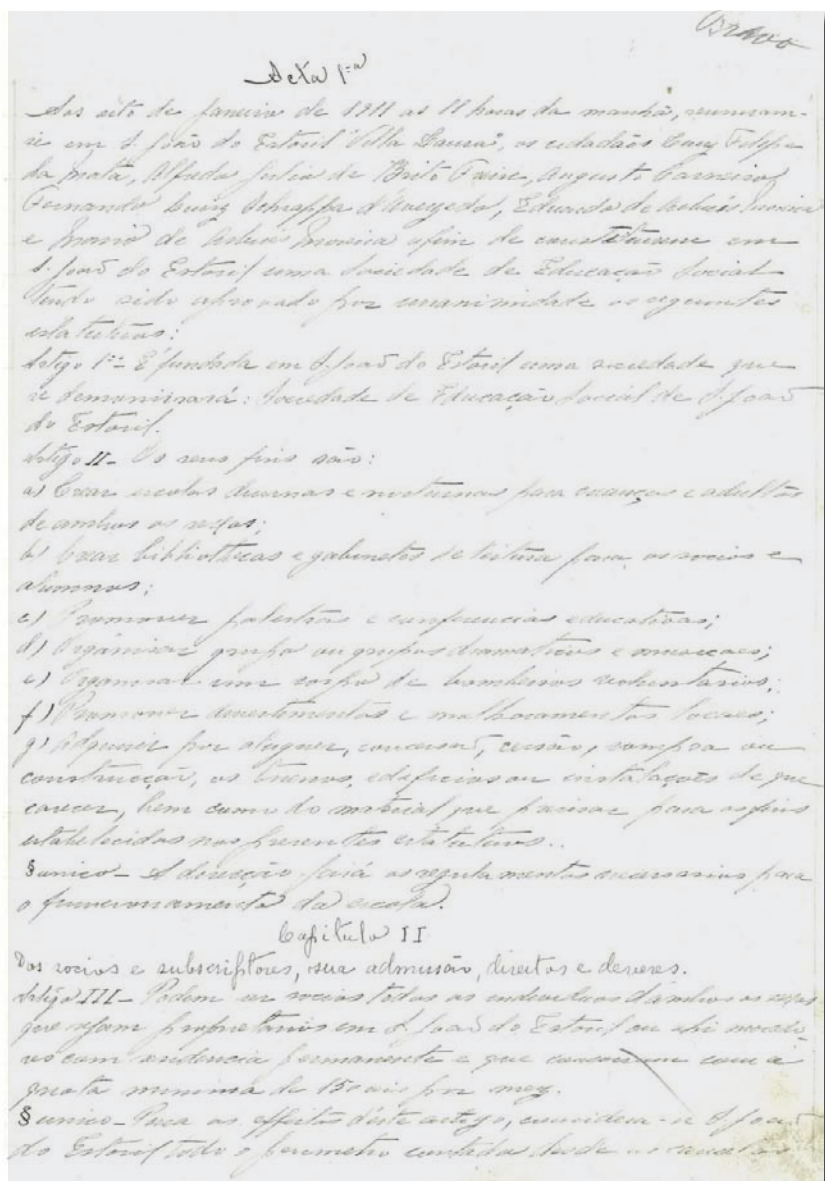 Bravo
Acta 1ª
Aos oito de Janeiro de 1911 as 11 horas da manhã, reuniram-
se em S. João do Estoril "Villa Laura", os cidadãos Luiz Filippe
da Mata, Alfredo Julio de Brito Freire, Augusto Carneiro,
Fernando Luiz d'Azevedo, Eduardo de Moreira
e Mario de Moreira afim de constituirem em
S. João do Estoril uma Sociedade de Educação Social
tendo sido aprovado por unanimidade os seguintes
estatutos:
Artigo 1º- É fundada em S. João do Estoril uma sociedade que
se denominará: Sociedade de Educação Social de S. João
do Estoril.
Artigo II- Os seus fins são:
a) Crear escolas diurnas e nocturnas para creanças e adultos
de ambos os sexos;
b) Crear bibliothecas e gabinetes de leitura para os socios e
alumnos;
c) Promover palestras e conferencias educativas;
d) Organisar grupo ou grupos dramaticos e musicaes;
e) Organisar um corpo de bombeiros voluntarios;
f) Promover devertimentos e melhoramentos locaes;
g) Adquirir por aluguer, concessão, cessão, compra ou
construcção, os terrenos, edificios ou instalações de que
carecer, bem como do material que precisar para os fins
estabelecidos nos presentes estatutos..
§ unico- A direcção fará os regulamentos necessarios para
o funccionamento da escola.
Capitulo II
Dos socios e subscriptores, sua admissão, direitos e deveres.
Artigo III- Podem ser socios todos os individuos d'ambos os sexos
que sejam proprietarios em S. João do Estoril ou ahi
com residencia permanente e que concorram com a
quota minima de 150 reis por mez.
§ unico- Para os effeitos d'este artigo, considera-se S. João
do Estoril todo o perimetro contado desde